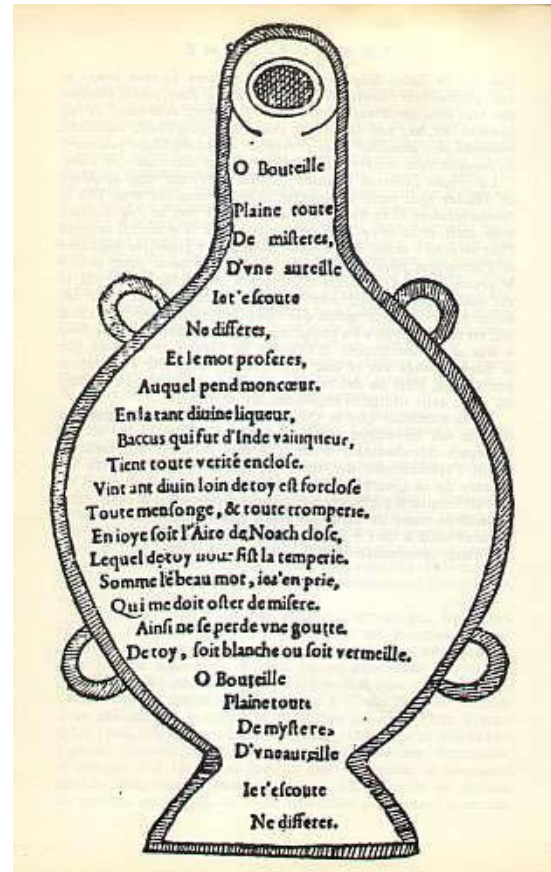 O Bouteille
Plaine toute
De miſteres,
D'vne aureille
Ie t'eſcoute
Ne differes,
Et le mot proferes,
Auquel pend mon cœur.
En la tant diuine liqueur,
Baccus qui fut d'Inde vainqueur,
Tient toute verité encloſe.
Vint ant diuin loin de toy eſt forcloſe
Toute menſonge, & toute tromperie.
En ioye ſoit l'Aire de Noach cloſe,
Lequel de toy nous fiſt la temperie.
Somme lé beau mot, ie t'en prie,
Qui me doit oſter de miſere.
Ainſi ne ſe perde vne goutte.
De toy, ſoit blanche ou ſoit vermeille.
O Bouteille
Plaine toute
De myſteres
D'vne aureille
Ie t'eſcoute
Ne differes.